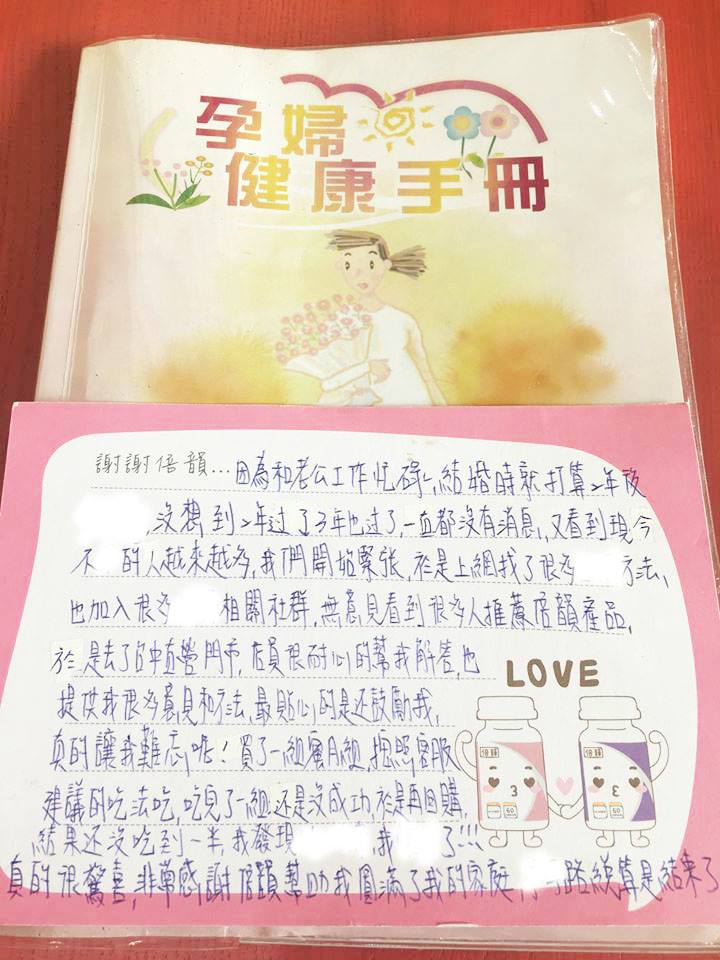 孕婦
健康手冊
謝謝倍韻...因為和老公工作忙碌,結婚時就打算2年後
,沒想到2年过了3年也过了,一直都沒有消息,又看到現今
不 的人越來越多,我們開始緊張,於是上網找了很多 方法,
也加入很多 相關社群,無意見看到很多人推薦倍韻產品,
於是去了台中直營門市,店員很耐心的幫我解答,也
提供我很多意見和方法,最貼心的是还鼓勵我,
真的讓我難忘呢!買了一組蜜月組,按照客服
建議的吃法吃,吃完了一組还是沒成功,於是再回購,
結果还沒吃到一半,我發現 ,我 了!!!
真的很驚喜,非常感謝倍韻幫助我圓滿了我的家庭 路總算是結束了
LOVE
倍韻
60
倍韻
60